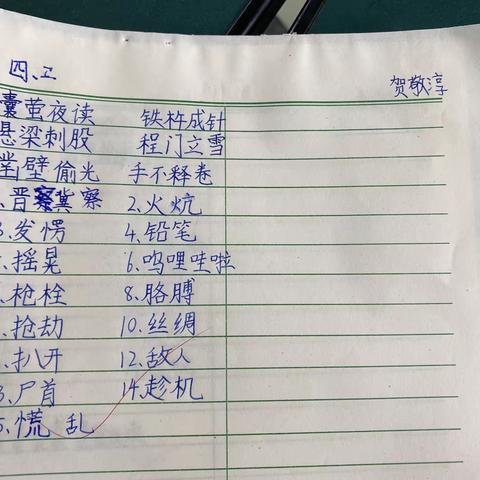 四、工
贺敬淳
囊萤夜读 铁杵成针
悬梁刺股 程门立雪
凿壁偷光 手不释卷
晋察冀 察 2.火炕
3.发愣 4.铅笔
摇晃 6.呜哩哇啦
枪栓 8.胳膊
抢劫 10.丝绸
扒开 12.敌人
3.尸首 14.趁机
5.慌乱